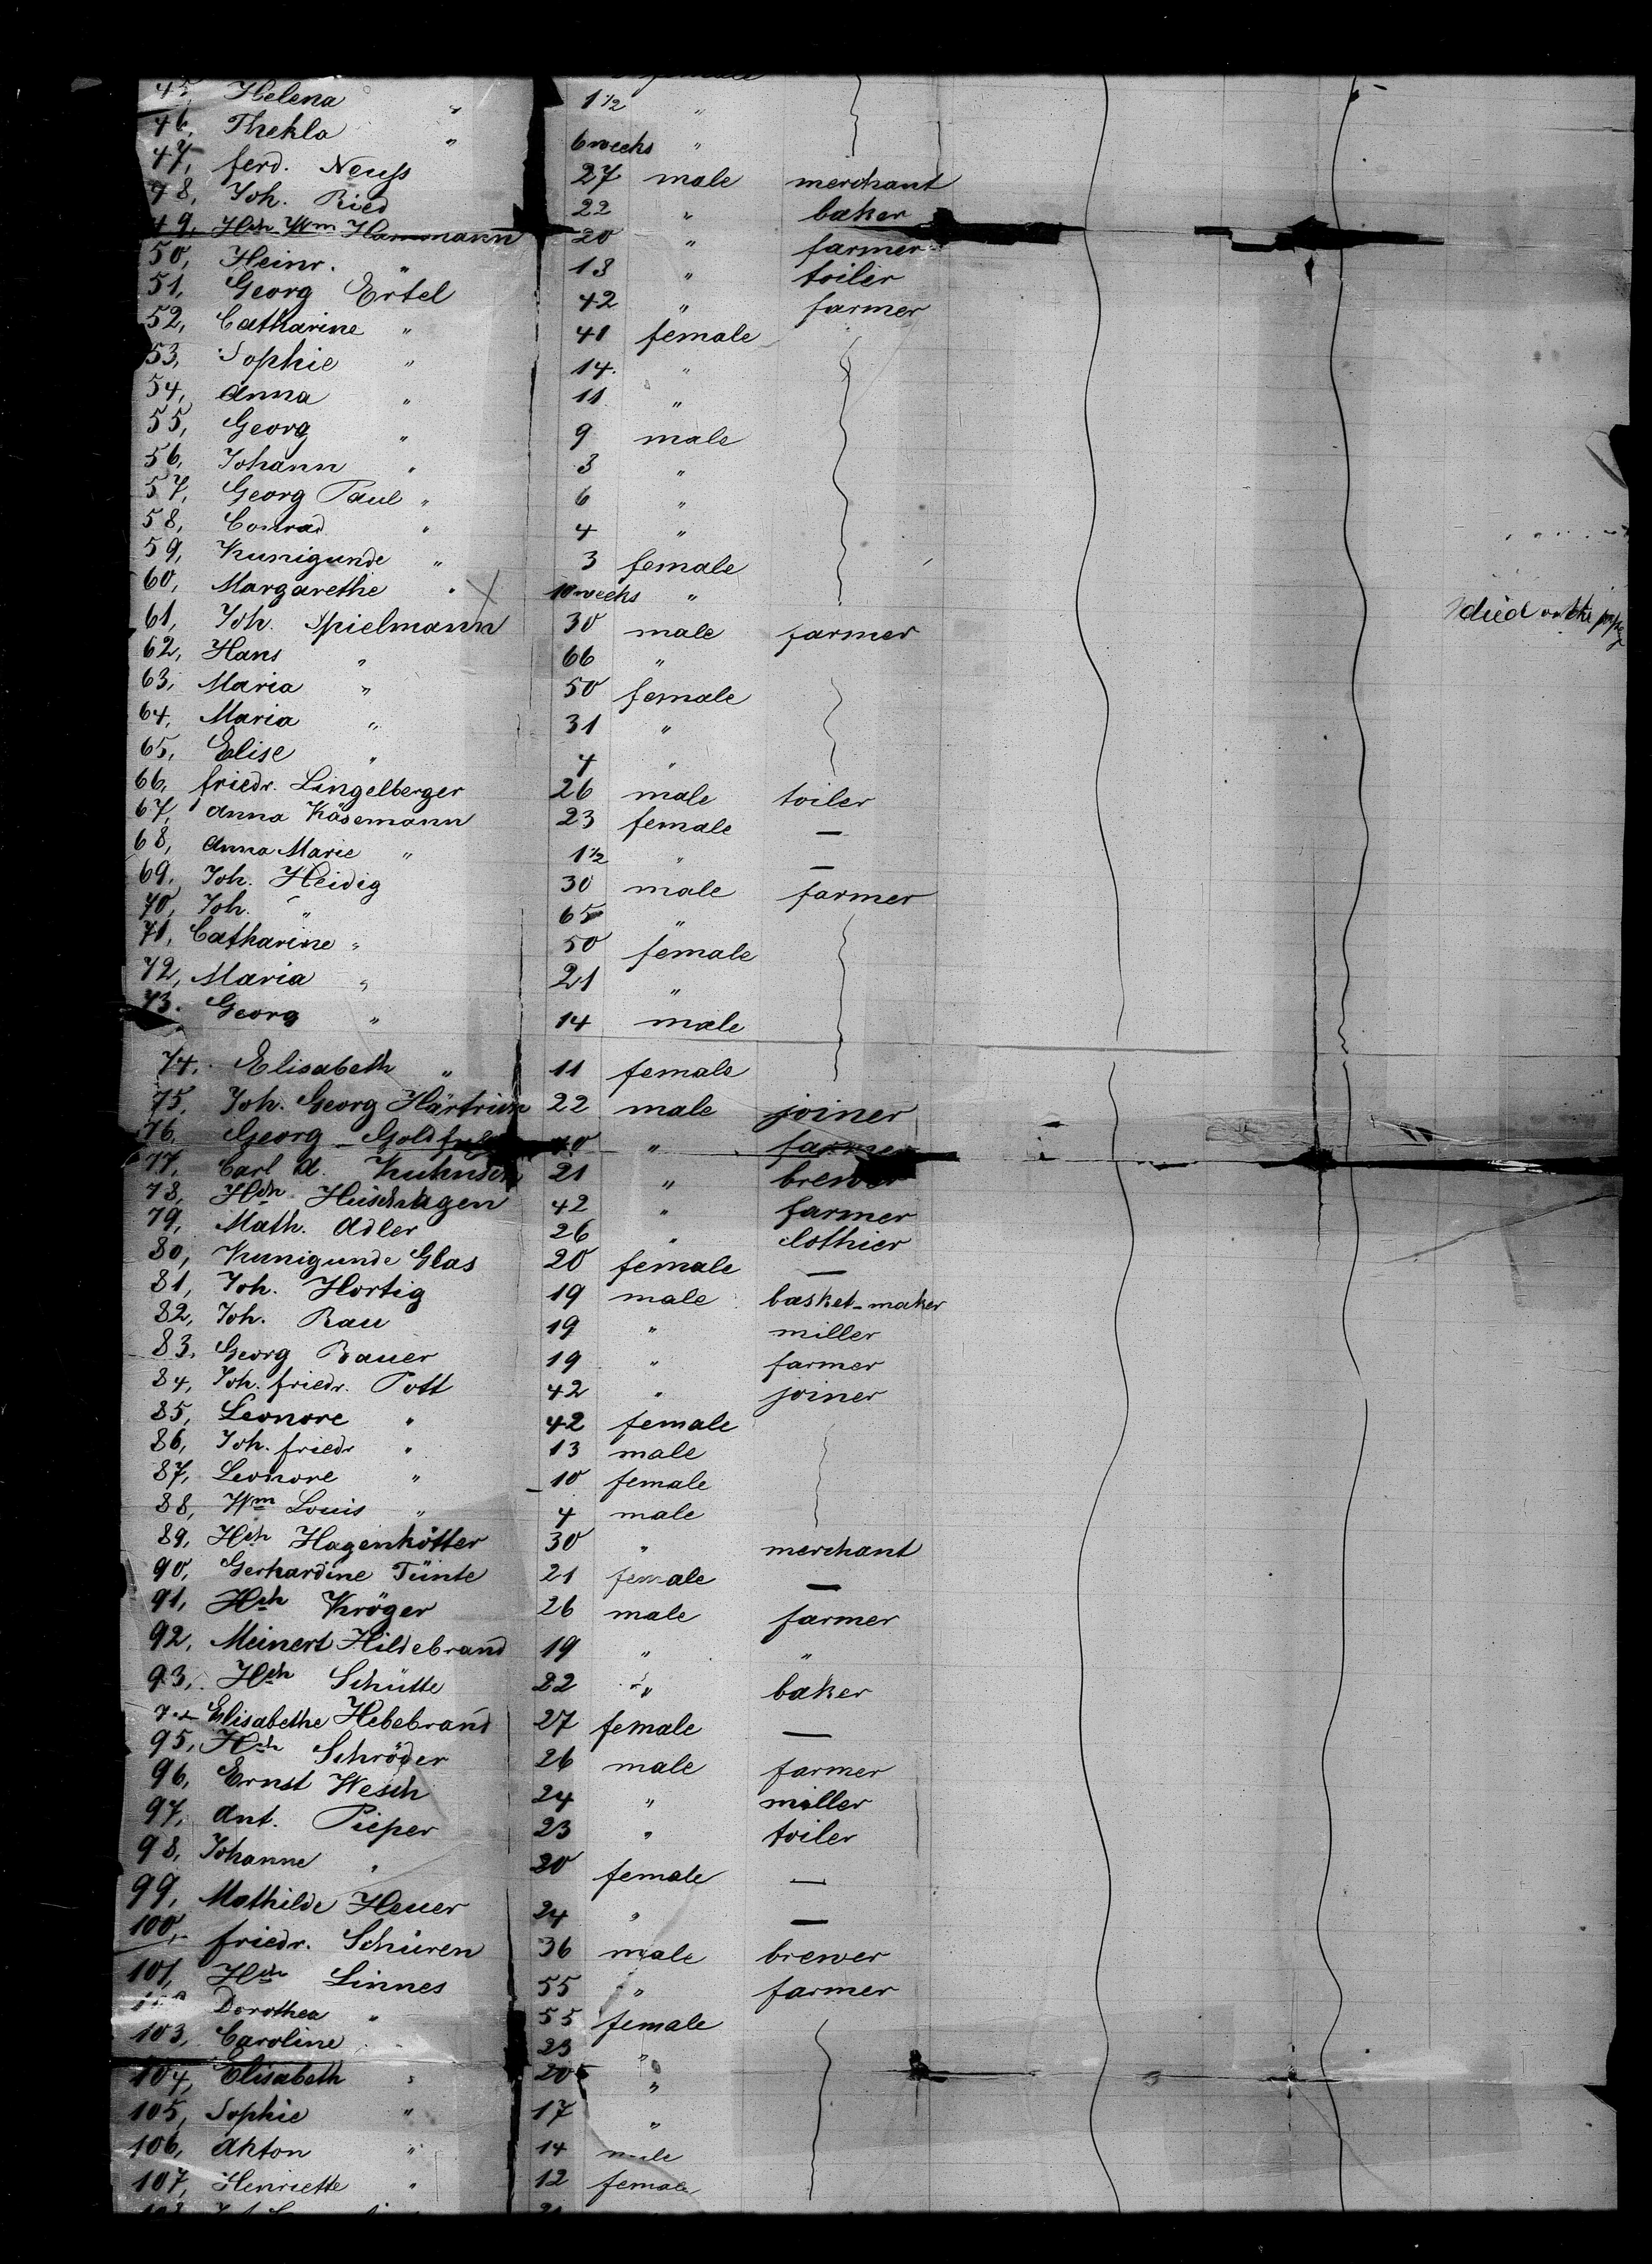 female
45, Helena " 1 1/2 "
46, Thekla " 6 weeks "
47, ferd. Neuss 27 male merchant
48, Joh. Ried 22 " baker
49, Hch Wm Hammann 20 " farmer
50, Heinr. " 18 " toiler
51, Georg Ertel 42 " farmer
52, Catharine " 41 female
53, Sophie " 14 "
54, Anna " 11 "
55, Georg " 9 male
56, Johann " 8 "
57, Georg Paul " 6 "
58, Conrad " 4 "
59, Kunigunde " 3 female
60, Margarethe " X 10 weeks " died on the
61, Joh. Spielmann 30 male farmer
62, Hans " 66 "
63, Maria " 50 female
64, Maria " 31 "
65, Elise " 4 "
66, friedr. Lingelberger 26 male toiler
67, Anna Käsemann 23 female —
68, Anna Marie " 1 1/2 " —
69, Joh. Heidig 30 male farmer
70, Joh. " 65 "
71, Catharine " 50 female
72, Maria " 21 "
73. Georg " 14 male
74, Elisabeth " 11 female
75, Joh. Georg 22 male joiner
76, Georg " farmer
77, Carl A. 21 " brewer
78, Hch Huschagen 42 " farmer
79, Math. Adler 26 " clothier
80, Kunigunde Glas 20 female —
81, Joh. Hortig 19 male basket-maker
82, Joh. Rau 19 " miller
83, Georg Bauer 19 " farmer
84, Joh. friedr. Pott 42 " joiner
85, Leonore " 42 female
86, Joh. friedr " 13 male
87, Leonore " 10 female
88, Wm Louis " 4 male
89, Hch Hagenkötter 30 " merchant
90, Gerhardine Tünte 21 female —
91, Hch Kröger 26 male farmer
92, Meinert Hildebrand 19 " "
93, Hch Schütte 22 " baker
Elisabethe Hebebrand 27 female —
95, Hch Schröder 26 male farmer
96, Ernst Wesch 24 " miller
97, Ant. Pieper 23 " toiler
98, Johanne " 20 female —
99, Mathilde Heuer 24 " —
100, friedr. Schüren 36 male brewer
101, Hch Linnes 55 " farmer
Dorothea " 55 female
103, Caroline " 23 "
104, Elisabeth " 20 "
105, Sophie " 17 "
106, Anton " 14 male
107, Henriette " 12 female